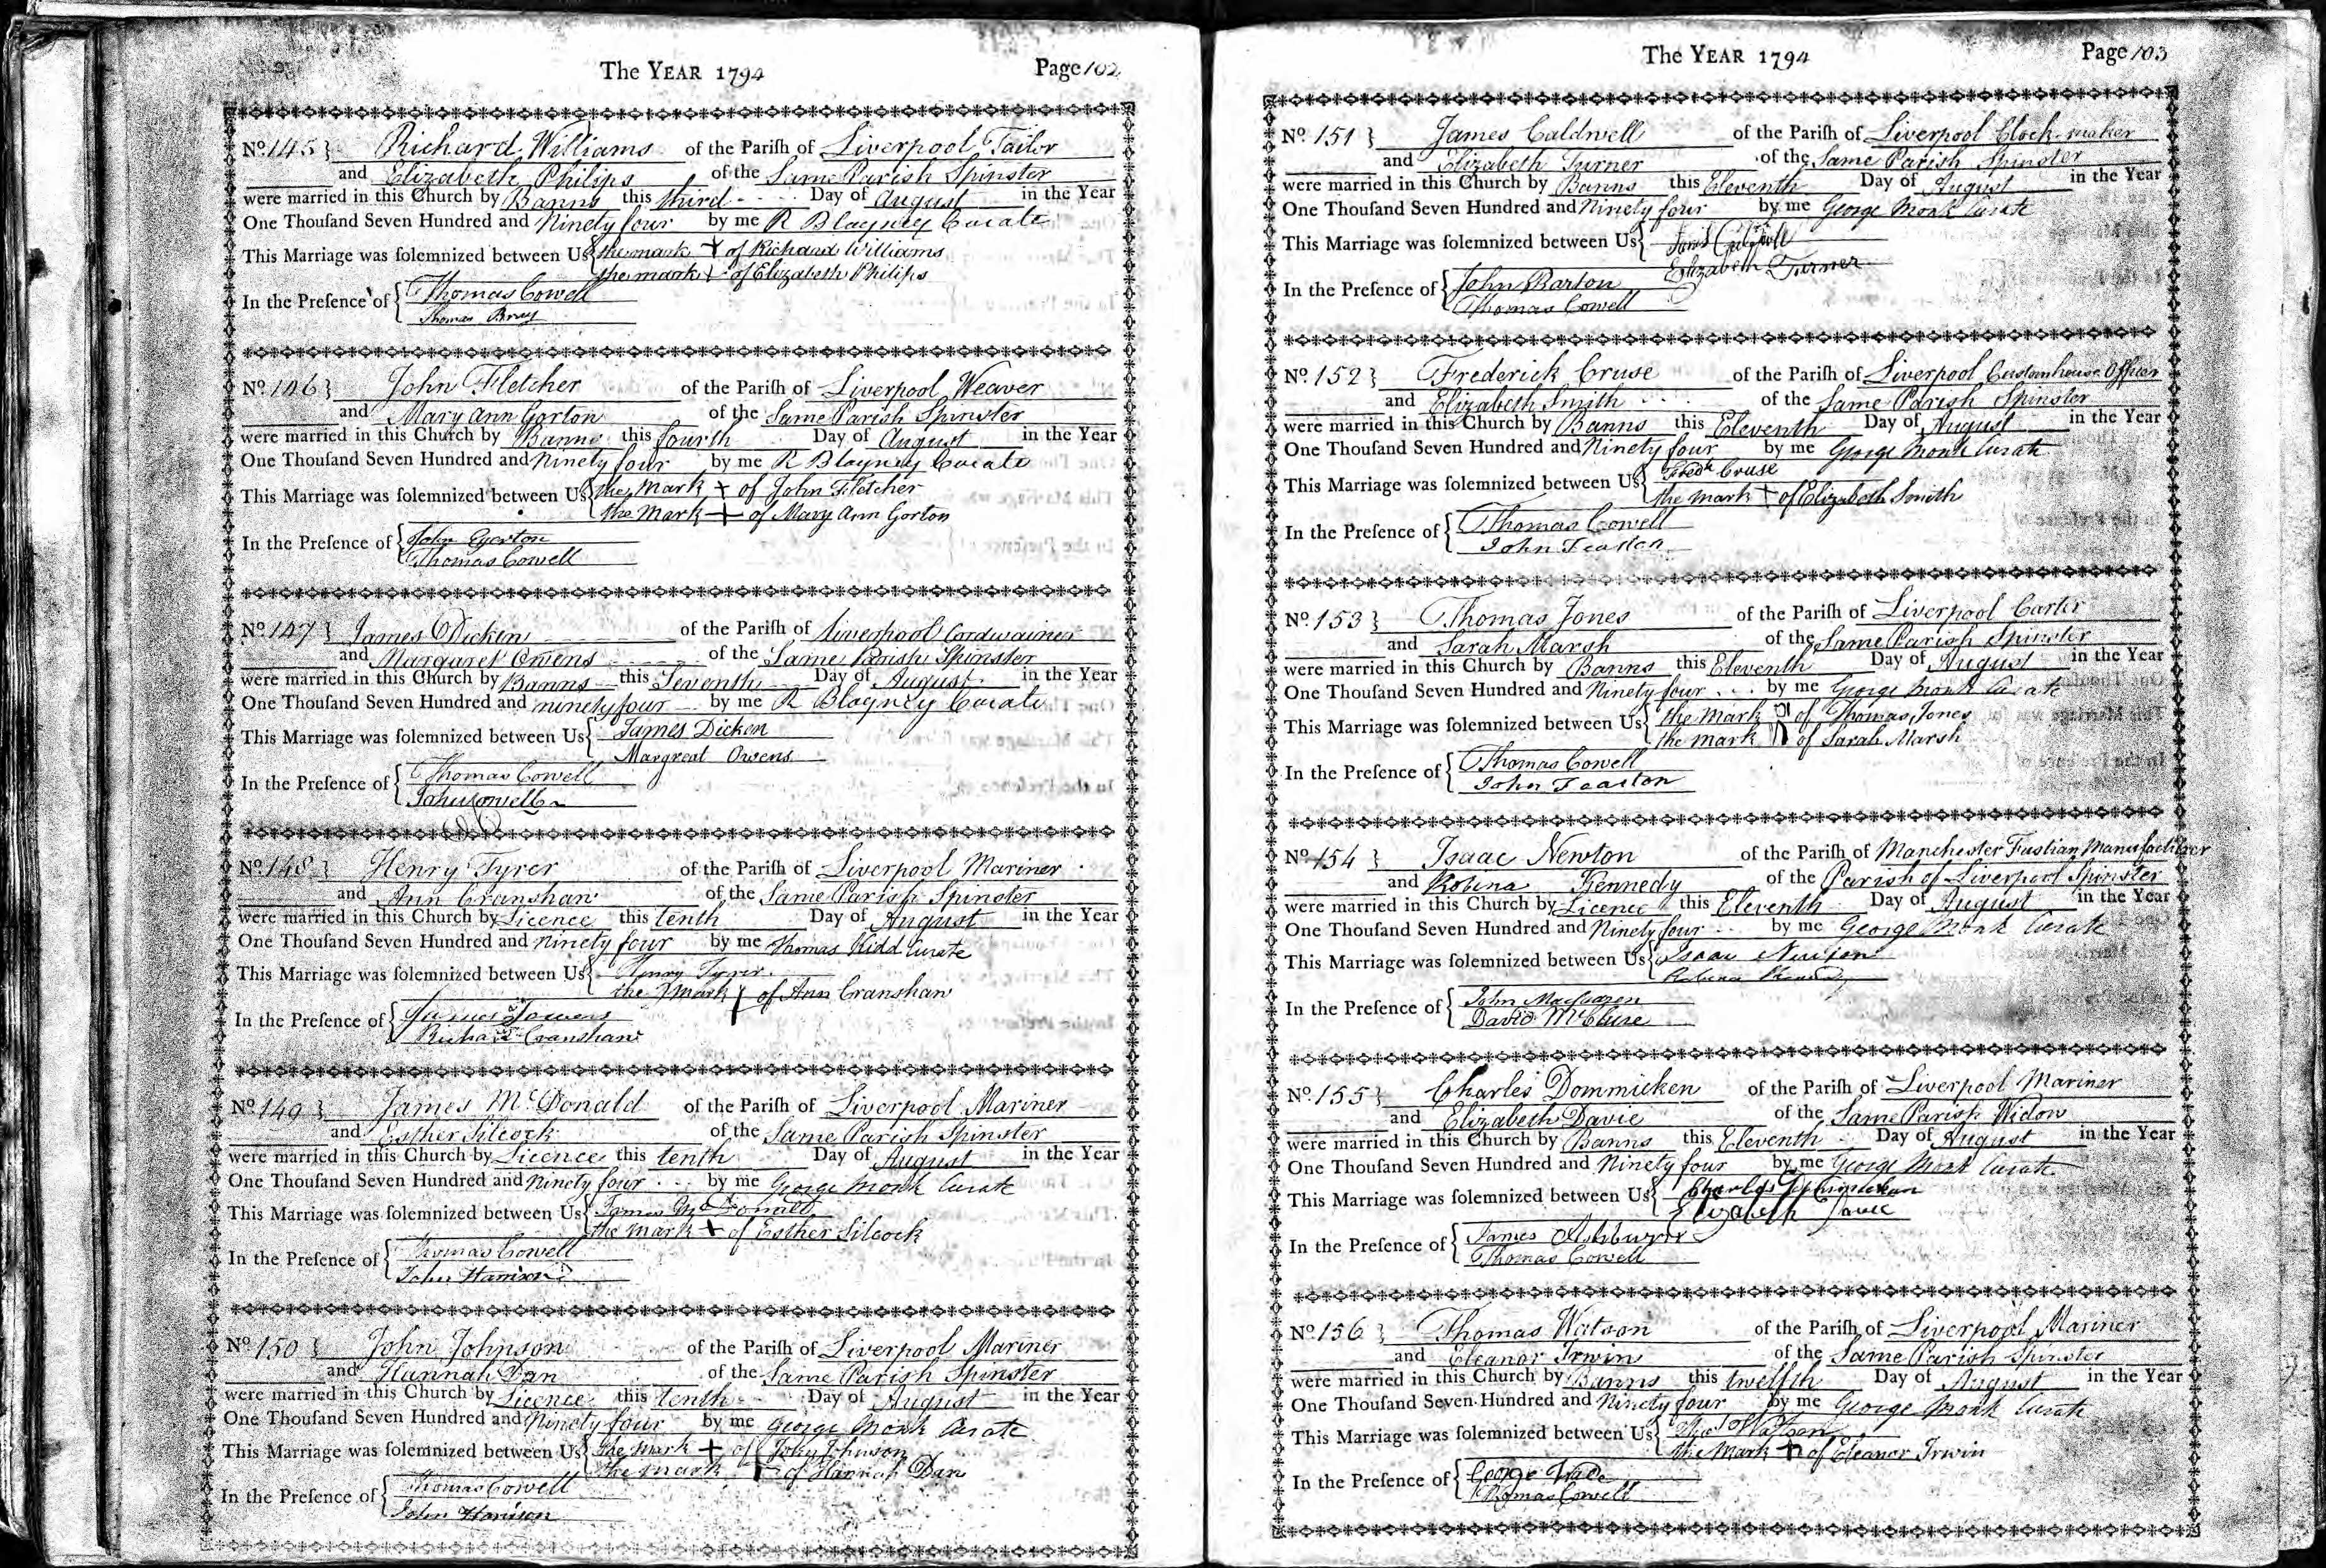 The YEAR 1794 Page 102
No. 145 } Richard Williams of the Pariſh of Liverpool Tailor
and Elizabeth Philips of the Same Parish Spinster
were married in this Church by Banns this third Day of August in the Year
One Thouſand Seven Hundred and Ninety four by me R Blayney Curate
This Marriage was ſolemnized between Us { the mark + of Richard Williams
the mark + of Elizabeth Philips
In the Preſence of { Thomas Cowell
Thomas
No. 146 } John Fletcher of the Pariſh of Liverpool Weaver
and Mary Ann Gorton of the Same Parish Spinster
were married in this Church by Banns this fourth Day of August in the Year
One Thouſand Seven Hundred and Ninety four by me R Blayney Curate
This Marriage was ſolemnized between Us { the Mark + of John Fletcher
the Mark + of Mary Ann Gorton
In the Preſence of { John Gorton
Thomas Cowell
No. 147 } James Dicken of the Pariſh of Liverpool Cordwainer
and Margaret Owens of the Same Parish Spinster
were married in this Church by Banns this Seventh Day of August in the Year
One Thouſand Seven Hundred and ninety four by me R Blayney Curate
This Marriage was ſolemnized between Us { James Dicken
Margreat Owens
In the Preſence of { Thomas Cowell
John Cowell
No. 148 } Henry Tyrer of the Pariſh of Liverpool Mariner
and Ann Cranshaw of the Same Parish Spinster
were married in this Church by Licence this tenth Day of August in the Year
One Thouſand Seven Hundred and Ninety four by me Thomas Kidd Curate
This Marriage was ſolemnized between Us { Henry Tyrer
the Mark + of Ann Cranshaw
In the Preſence of { James Towers
Richard Cranshaw
No. 149 } James McDonald of the Pariſh of Liverpool Mariner
and Esther Silcock of the Same Parish Spinster
were married in this Church by Licence this tenth Day of August in the Year
One Thouſand Seven Hundred and Ninety four by me George Monk Curate
This Marriage was ſolemnized between Us { James McDonald
the Mark + of Esther Silcock
In the Preſence of { Thomas Cowell
John Harrison
No. 150 } John Johnson of the Pariſh of Liverpool Mariner
and Hannah Dan of the Same Parish Spinster
were married in this Church by Licence this tenth Day of August in the Year
One Thouſand Seven Hundred and Ninety four by me George Monk Curate
This Marriage was ſolemnized between Us { the Mark + of John Johnson
the mark + of Hannah Dan
In the Preſence of { Thomas Cowell
John Harrison
The YEAR 1794 Page 103
No. 151 } James Caldwell of the Pariſh of Liverpool Clock-maker
and Elizabeth Turner of the Same Parish Spinster
were married in this Church by Banns this Eleventh Day of August in the Year
One Thouſand Seven Hundred and Ninety four by me George Monk Curate
This Marriage was ſolemnized between Us {
Elizabeth Turner
In the Preſence of { John Barton
Thomas Cowell
No. 152 } Frederick Cruse of the Pariſh of Liverpool Customhouse Officer
and Elizabeth Smith of the Same Parish Spinster
were married in this Church by Banns this Eleventh Day of August in the Year
One Thouſand Seven Hundred and Ninety four by me George Monk Curate
This Marriage was ſolemnized between Us { Fredk Cruse
the Mark + of Elizabeth Smith
In the Preſence of { Thomas Cowell
John Fearson
No. 153 } Thomas Jones of the Pariſh of Liverpool Carter
and Sarah Marsh of the Same Parish Spinster
were married in this Church by Banns this Eleventh Day of August in the Year
One Thouſand Seven Hundred and Ninety four by me George Monk Curate
This Marriage was ſolemnized between Us { the Mark of Thomas Jones
the Mark of Sarah Marsh
In the Preſence of { Thomas Cowell
John
No. 154 } Isaac Newton of the Pariſh of Manchester Fustian Manufacturer
and Robina Kennedy of the Parish of Liverpool Spinster
were married in this Church by Licence this Eleventh Day of August in the Year
One Thouſand Seven Hundred and Ninety four by me George Monk Curate
This Marriage was ſolemnized between Us { Isaac Newton
Robina Kennedy
In the Preſence of { John
David McClure
No. 155 } Charles Dommicken of the Pariſh of Liverpool Mariner
and Elizabeth Davie of the Same Parish Widow
were married in this Church by Banns this Eleventh Day of August in the Year
One Thouſand Seven Hundred and Ninety four by me George Monk Curate
This Marriage was ſolemnized between Us { Charles
Elizabeth Davie
In the Preſence of { James
Thomas Cowell
No. 156 } Thomas Watson of the Pariſh of Liverpool Mariner
and Eleanor Irwin of the Same Parish Spinster
were married in this Church by Banns this twelfth Day of August in the Year
One Thouſand Seven Hundred and Ninety four by me George Monk Curate
This Marriage was ſolemnized between Us { Watson
the Mark + of Eleanor Irwin
In the Preſence of { George
Thomas Cowell